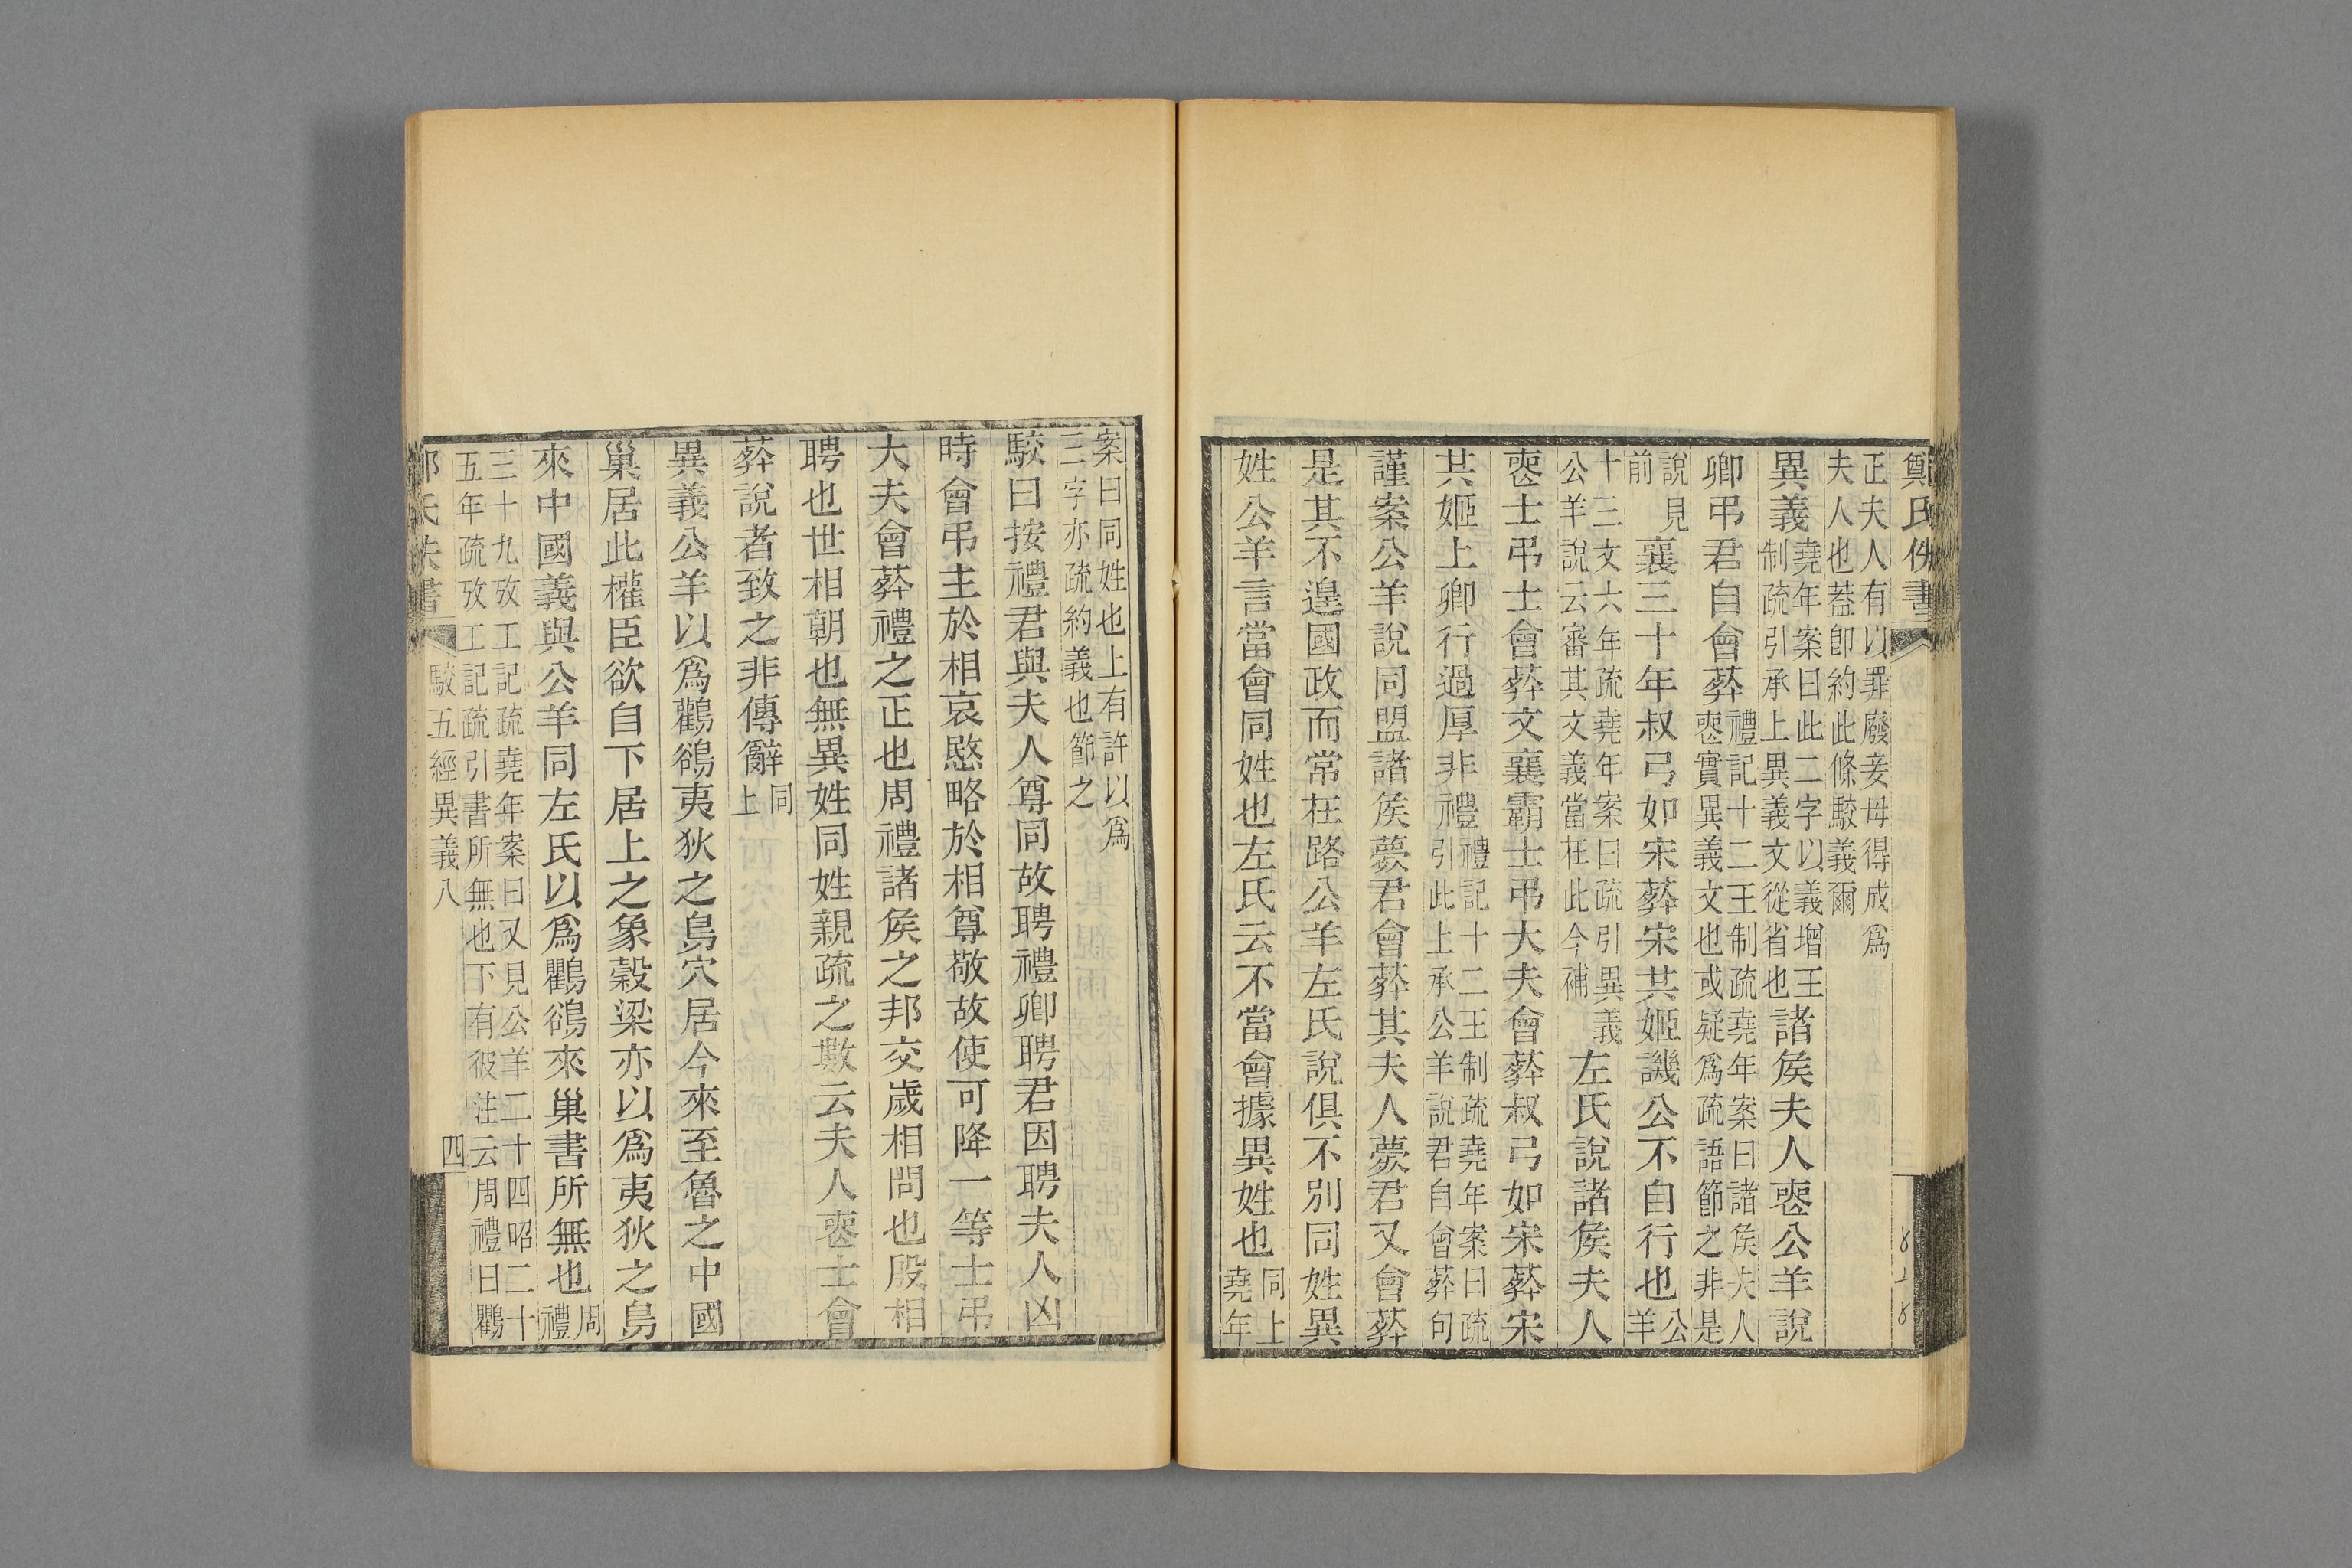 鄭氏佚書
正夫人有以罪廢妾母得成爲
夫人也蓋卽約此條駮義爾
異義堯年案曰此二字以義增王
制疏引承上異義文從省也諸矦夫人喪公羊說
卿弔君自會葬禮記十二王制疏堯年案曰諸矦夫人
喪實異義文也或疑爲疏語節之非是
說見
前襄三十年叔弓如宋葬宋共姬譏公不自行也公
羊
十三文六年疏堯年案曰疏引異義
公羊說云審其文義當在此今補左氏說諸矦夫人
喪士弔士會葬文襄霸士弔大夫會葬叔弓如宋葬宋
共姬上卿行過厚非禮禮記十二王制疏堯年案曰疏
引此上承公羊說君自會葬句
謹案公羊說同盟諸矦薨君會葬其夫人薨君又會葬
是其不遑國政而常在路公羊左氏說俱不別同姓異
姓公羊言當會同姓也左氏云不當會據異姓也同上
堯年
案曰同姓也上有許以爲
三字亦疏約義也節之
駮曰按禮君與夫人尊同故聘禮卿聘君因聘夫人凶
時會弔主於相哀愍略於相尊敬故使可降一等士弔
大夫會葬禮之正也周禮諸矦之邦交歲相問也殷相
聘也世相朝也無異姓同姓親疏之數云夫人喪士會
葬說者致之非傳辭同
上
異義公羊以爲鸛鵒夷狄之鳥穴居今來至魯之中國
巢居此權臣欲自下居上之象穀梁亦以爲夷狄之鳥
來中國義與公羊同左氏以爲鸜鵒來巢書所無也周
禮
三十九攷工記疏堯年案曰又見公羊二十四昭二十
五年疏攷工記疏引書所無也下有彼注云周禮曰鸜
駮五經異義八
四